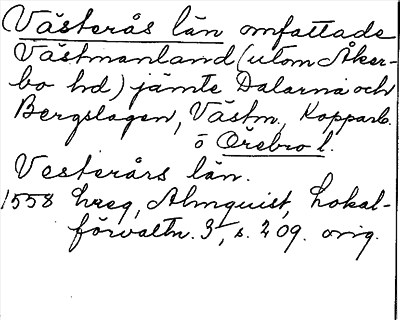 Västerås län omfattade
Västmanland (utom Åker-
bo hd) jämte Dalarna och
Bergslagen, Västm., Kopparb.
o Örebro l.
Vesterårs län.
1558 hreg, Almquist, Lokal-
förvaltn. 3, s. 209. orig.